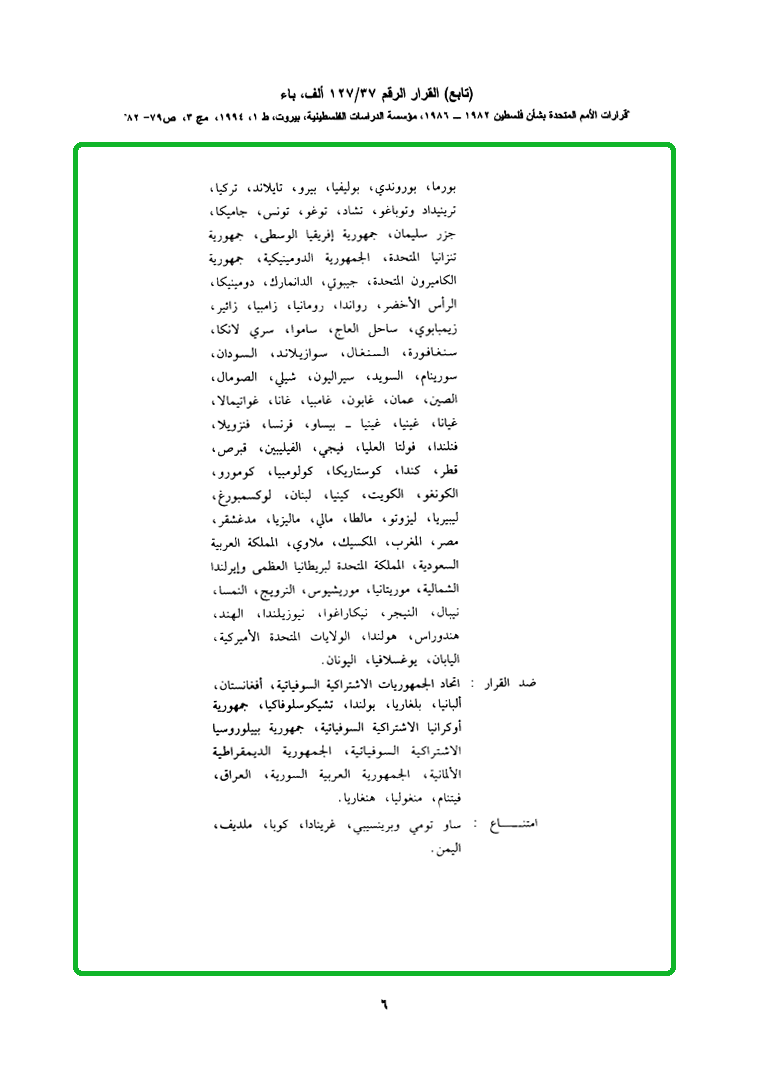 (تابع) القرار الرقم ١٢٧/٣٧ ألف، باء
قرارات الأمم المتحدة بشأن فلسطين ١٩٨٢ ــ ١٩٨٦، مؤسسة الدراسات الفلسطينية، بيروت، ط ١، ١٩٩٤، مج ٣، ص٧٩– ٨٢
بورما، بوروندي، بوليفيا، بيرو، تايلاند، تركيا،
ترينيداد وتوباغو، تشاد، توغو، تونس، جاميكا،
جزر سليمان، جمهورية إفريقيا الوسطى، جمهورية
تنزانيا المتحدة، الجمهورية الدومينيكية، جمهورية
الكاميرون المتحدة، جيبوتي، الدانمارك، دومينيكا،
الرأس الأخضر، رواندا، رومانيا، زامبيا، زائير،
زيمبابوي، ساحل العاج، ساموا، سري لانكا،
سنغافورة، السنغال، سوازيلاند، السودان،
سورينام، السويد، سيراليون، شيلي، الصومال،
الصين، عمان، غابون، غامبيا، غانا، غواتيمالا،
غيانا، غينيا، غينيا ــ بيساو، فرنسا، فنزويلا،
فنلندا، فولتا العليا، فيجي، الفيليبين، قبرص،
قطر، كندا، كوستاريكا، كولومبيا، كومورو،
الكونغو، الكويت، كينيا، لبنان، لوكسمبورغ،
ليبيريا، ليزوتو، مالطا، مالي، ماليزيا، مدغشقر،
مصر، المغرب، المكسيك، ملاوي، المملكة العربية
السعودية، المملكة المتحدة لبريطانيا العظمى وإيرلندا
الشمالية، موريتانيا، موريشيوس، النرويج، النمسا،
نيبال، النيجر، نيكاراغوا، نيوزيلندا، الهند،
هندوراس، هولندا، الولايات المتحدة الأميركية،
اليابان، يوغسلافيا، اليونان.
ضد القرار : اتحاد الجمهوريات الاشتراكية السوفياتية، أفغانستان،
ألبانيا، بلغاريا، بولندا، تشيكوسلوفاكيا، جمهورية
أوكرانيا الاشتراكية السوفياتية، جمهورية بييلوروسيا
الاشتراكية السوفياتية، الجمهورية الديمقراطية
الألمانية، الجمهورية العربية السورية، العراق،
فيتنام، منغوليا، هنغاريا.
امتنـــــاع : ساو تومي وبرينسيبي، غرينادا، كوبا، ملديف،
اليمن.
٦